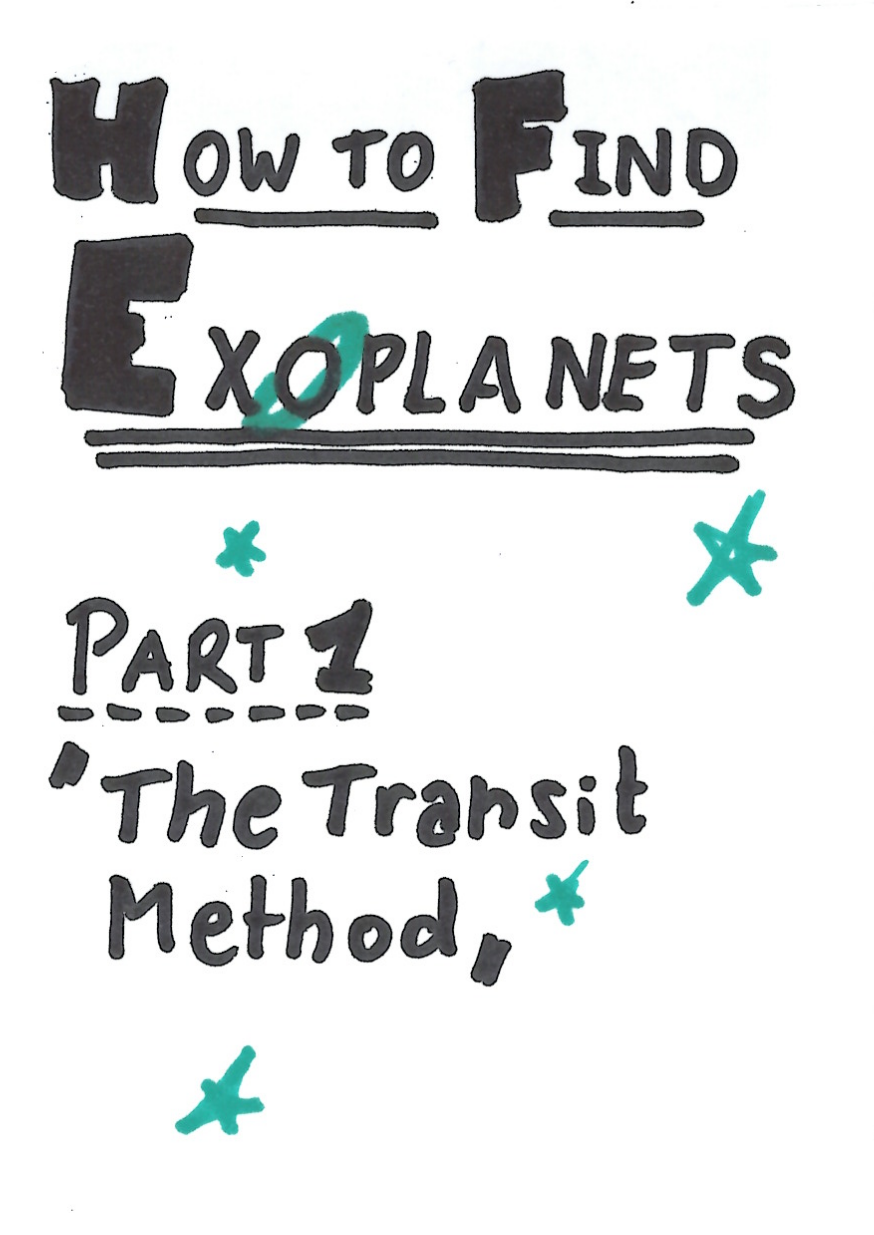 HOW TO FIND
EXOPLANETS
PART 1
"The Transit
Method"